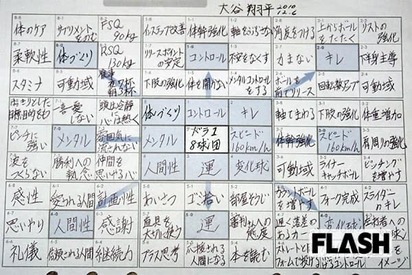 大谷 翔平 2010 12.6
体のケア サプリメントをのむ FSQ 90kg インステップ改善 体幹強化 軸をぶらさない 角度をつける 上からボールをたたく リストの強化
柔軟性 体づくり RSQ 130kg リリースポイントの安定 コントロール 不安をなくす 力まない キレ 下半身主導
スタミナ 可動域 下肢の強化 体を開かない メンタルコントロールをする 回転数アップ 可動域
はっきりとした目標目的をもつ 一喜一憂しない 頭は冷静に心は熱く 体づくり コントロール キレ 軸でまわる 下肢の強化 体重増加
ピンチに強い メンタル 雰囲気に流されない メンタル ドラ1 8球団 スピード160km/h 体幹強化 スピード160km/h 肩周りの強化
波をつくらない 勝利への執念 仲間を思いやる心 人間性 運 変化球 可動域 ライナーキャッチボール ピッチングを増やす
感性 愛される人間 計画性 あいさつ ゴミ拾い 部屋そうじ カウントボールを増やす フォーク完成
思いやり 人間性 感謝 道具を大切に使う 運 審判さんへの態度 遅く落差のあるカーブ 変化球
礼儀 信頼される人間 継続力 プラス思考 応援される人間になる 本を読む ストレートと同じフォームで投げる コントロール イメージ
FLASH